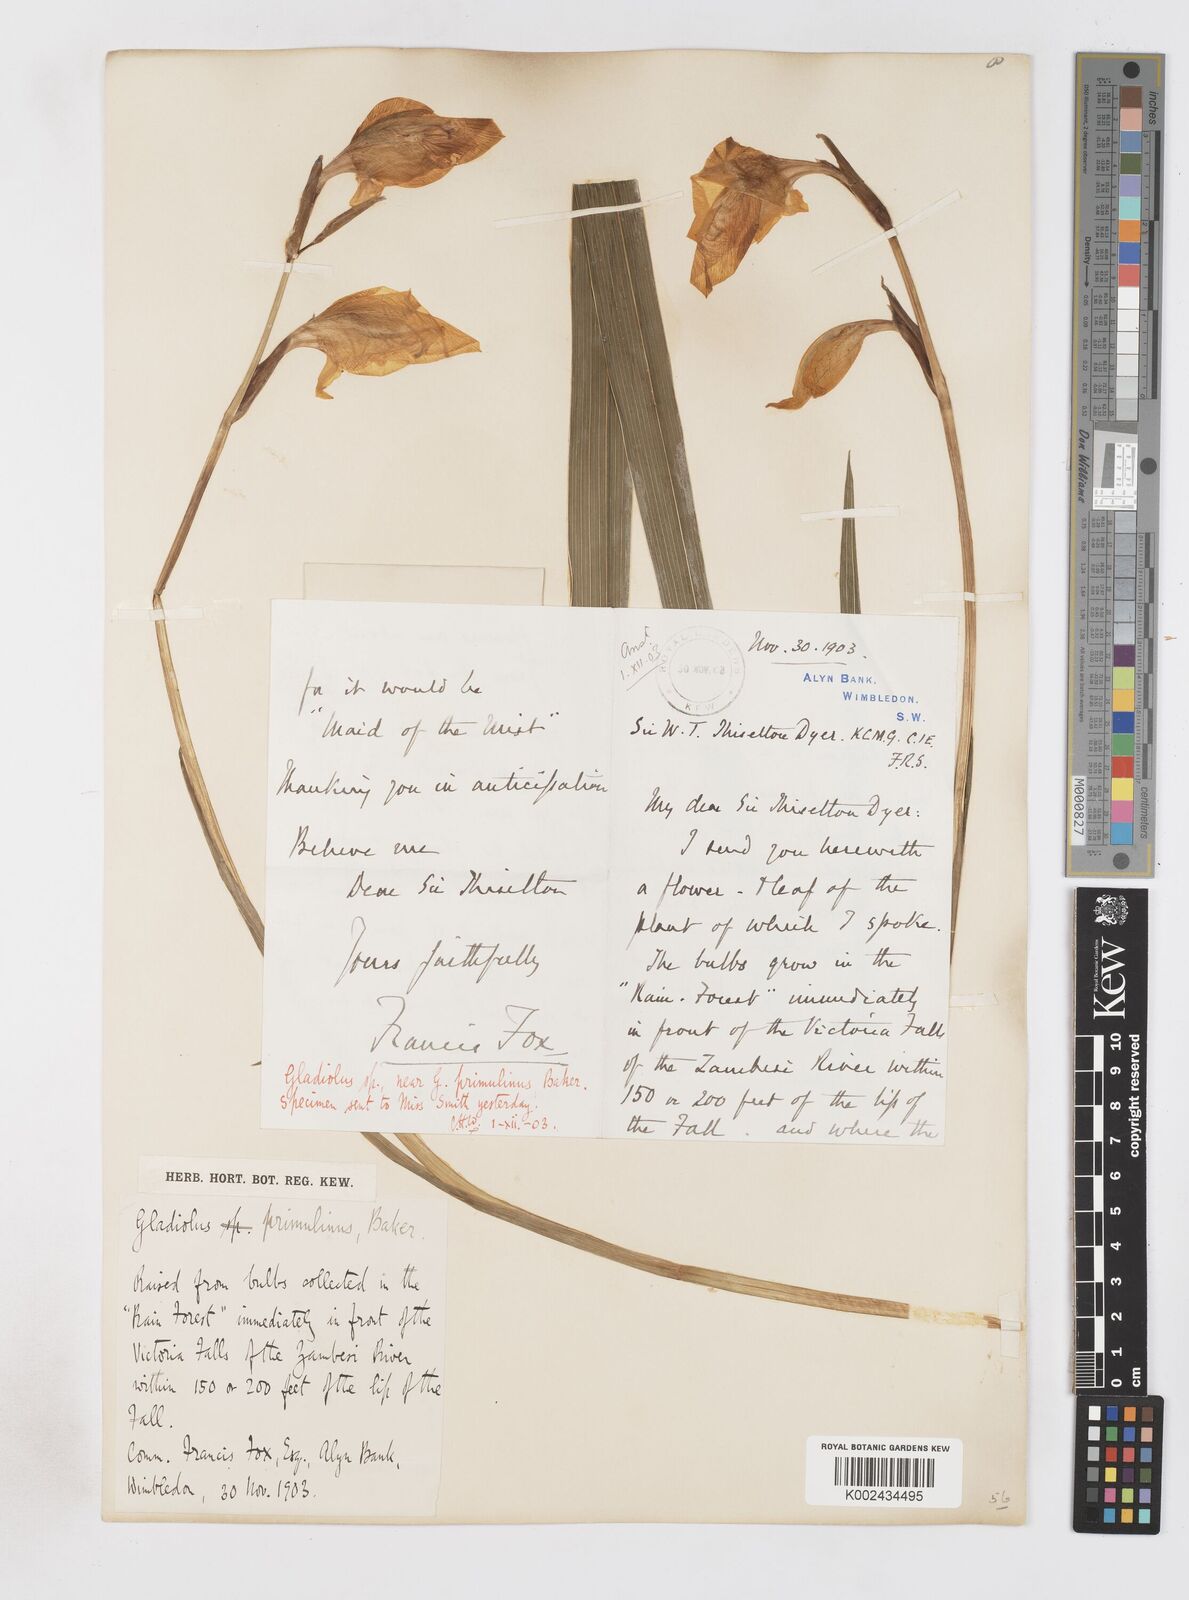 for it would be
"Maid of the Mist"
Thanking you in anticipation
Believe me
Dear Sir Thiselton
Yours faithfully
Francis Fox
Gladiolus sp., near G. primulinus Baker.
Specimen sent to Miss Smith yesterday.
C.H.W. 1-xii.-03.
Ansd.
1-XII-03
ROYAL GARDENS
KEW
Nov. 30. 1903.
ALYN BANK,
WIMBLEDON.
S.W.
Sir W. T. Thiselton Dyer. K.C.M.G. C.I.E.
F.R.S.
My dear Sir Thiselton Dyer:
I send you herewith
a flower - & leaf of the
plant of which I spoke.
The bulbs grow in the
"Rain-Forest" immediately
in front of the Victoria Falls
of the Zambesi River within
150 or 200 feet of the lip of
the Fall. and where the
HERB. HORT. BOT. REG. KEW.
Gladiolus sp. primulinus, Baker.
Raised from bulbs collected in the
"Rain Forest" immediately in front of the
Victoria Falls of the Zambesi River
within 150 or 200 feet of the lip of the
Fall.
Comm. Francis Fox, Esq., Alyn Bank,
Wimbledon, 30 Nov. 1903.
ROYAL BOTANIC GARDENS KEW
K002434495
56
inches
Density
Don Williams
centimetres
M000827
Royal Botanic Gardens
Kew
copyright reserved
0 1 2 3 4 5 6 7 8 9 10
cm